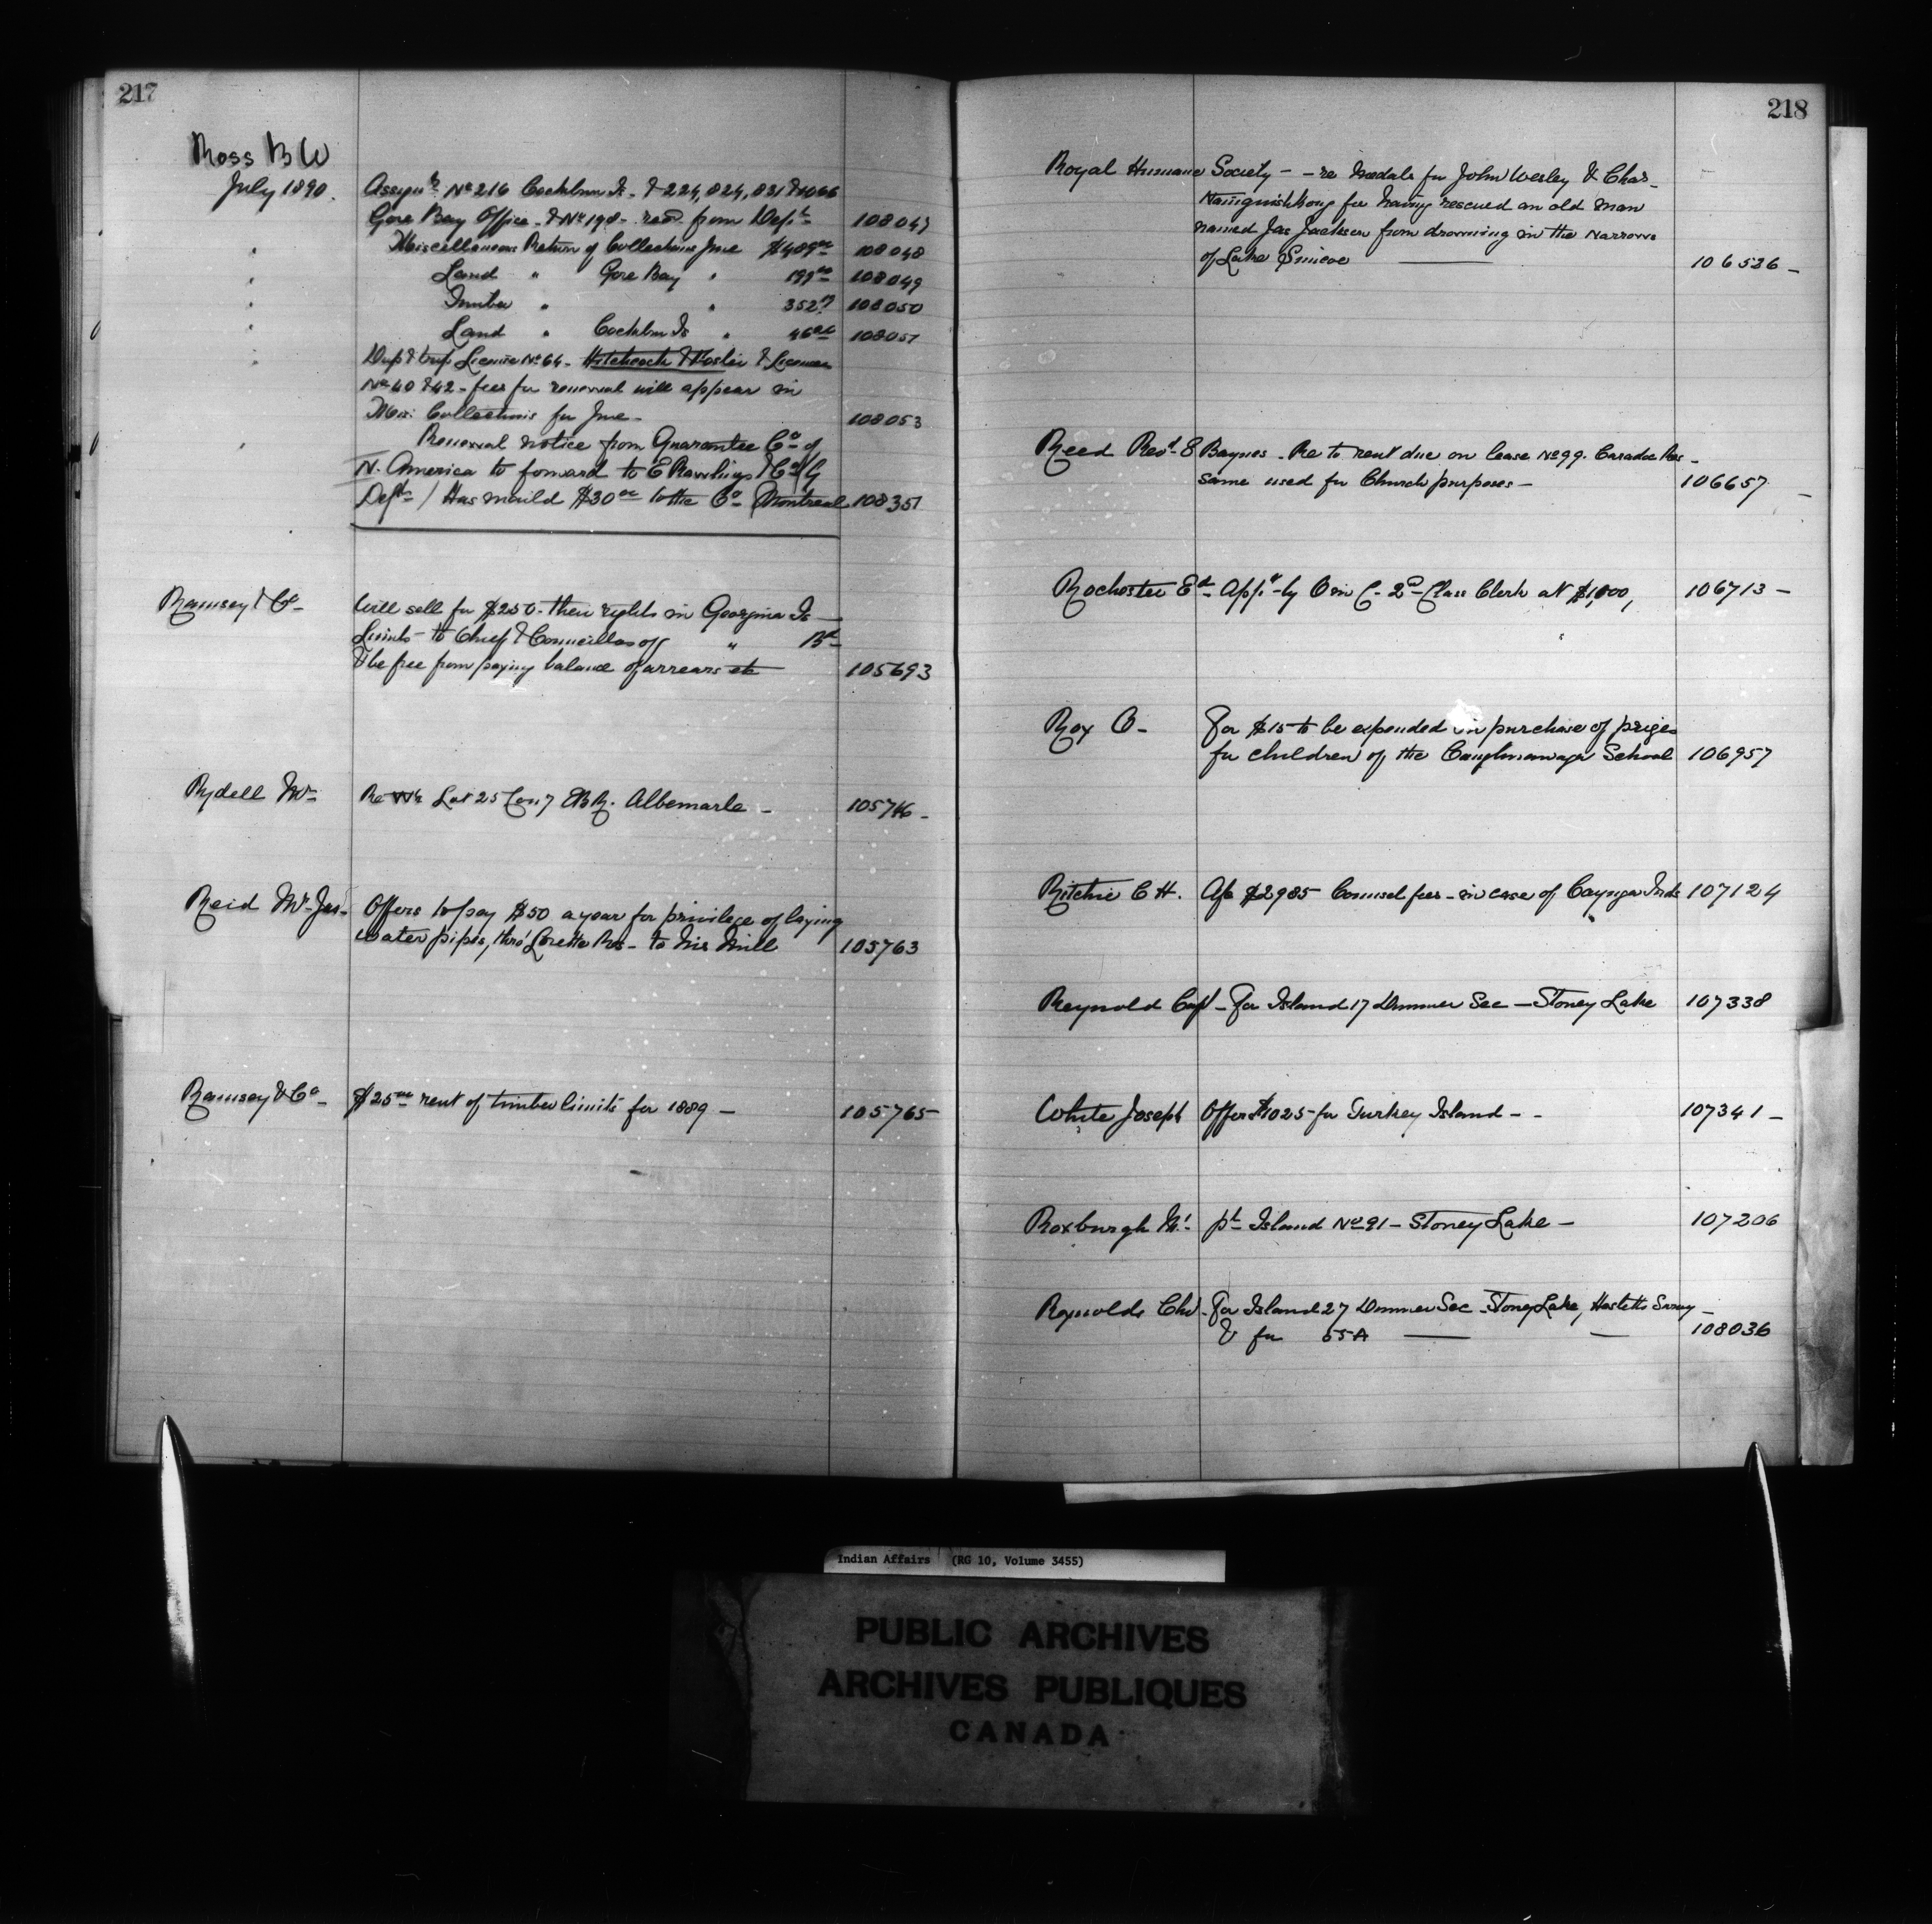 217
Ross B W
July 1890. Assignts No 216 Cockburn Is. & 224, 824, 831 & 1066
Gore Bay Office - & No 198 - recd. from Dept 108047
" Miscellaneous Return of Collections June $489.00 108048
" Land " Gore Bay " 199.00 108049
" Timber " " 352 108050
" Land " Cockburn Is " 46 108051
" Dup & trip License No 64 - Hitchcock & Foster & Licenses
No 40 & 42 - fees for renewal will appear in
Mis: Collections for June - 108053
" Renewal notice from Guarantee Co of
N. America to forward to E Rawlings & Co (by
Dept / Has maild $30.00 to the Co (Montreal 108351
Ramsey & Co - Will sell for $250 - their rights in Georgina Is -
Limits - to Chief & Councillors of " Bd -
& be free from paying balance of arrears etc 105693
Rydell Mr - Re Lot 25 Con 7 EBR. Albemarle - 105746 -
Reid Mr Jas - Offers to pay $50 a year for privilege of laying
water pipes, thro' Lorette Res - to his Mill 105763
Ramsey & Co - $25.00 rent of timber limits for 1889 - 105765 -
218
Royal Humane Society - - re Medals for John Wesley & Chas -
Nainguishkung for having rescued an old man
named Jas Jackson from drowning in the Narrows
of Lake Simcoe 106536 -
Reed Revd. E Baynes - Re to rent due on lease No 99. Caradoc Res -
same used for Church purposes - 106657 -
Rochester Ed - Appt - by O in C - 2nd Class Clerk at $1,800, 106713 -
Roy O - For $15 to be expended in purchase of prizes
for children of the Caughnawaga School 106957
Ritchie C H. A/c $2985 Counsel fees - in case of Cayuga Inds 107124
Reynold Capt - For Island 17 Dummer Sec - Stoney Lake 107338
White Joseph Offer $1025 for Turkey Island - - 107341 -
Roxburgh Mr. pt Island No 91 - Stoney Lake - 107206
Reynolds Chs - For Island 27 Dummer Sec - Stoney Lake, Hasletts Survey -
& for 55A 108036
Indian Affairs (RG 10, Volume 3455)
PUBLIC ARCHIVES
ARCHIVES PUBLIQUES
CANADA